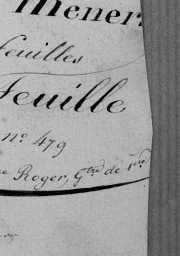 mener
feuilles
Feuille
nº 479
Roger, Gtre de 1re